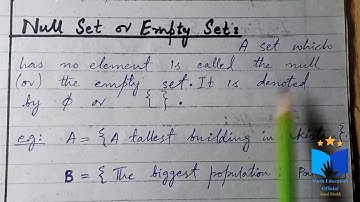 Null Set or Empty Set:
A set which
has no element is called the null
(or) the empty set. It is denoted
by ϕ or { }.
eg: A = {A tallest building in
B = {The biggest population
Math Education
Official